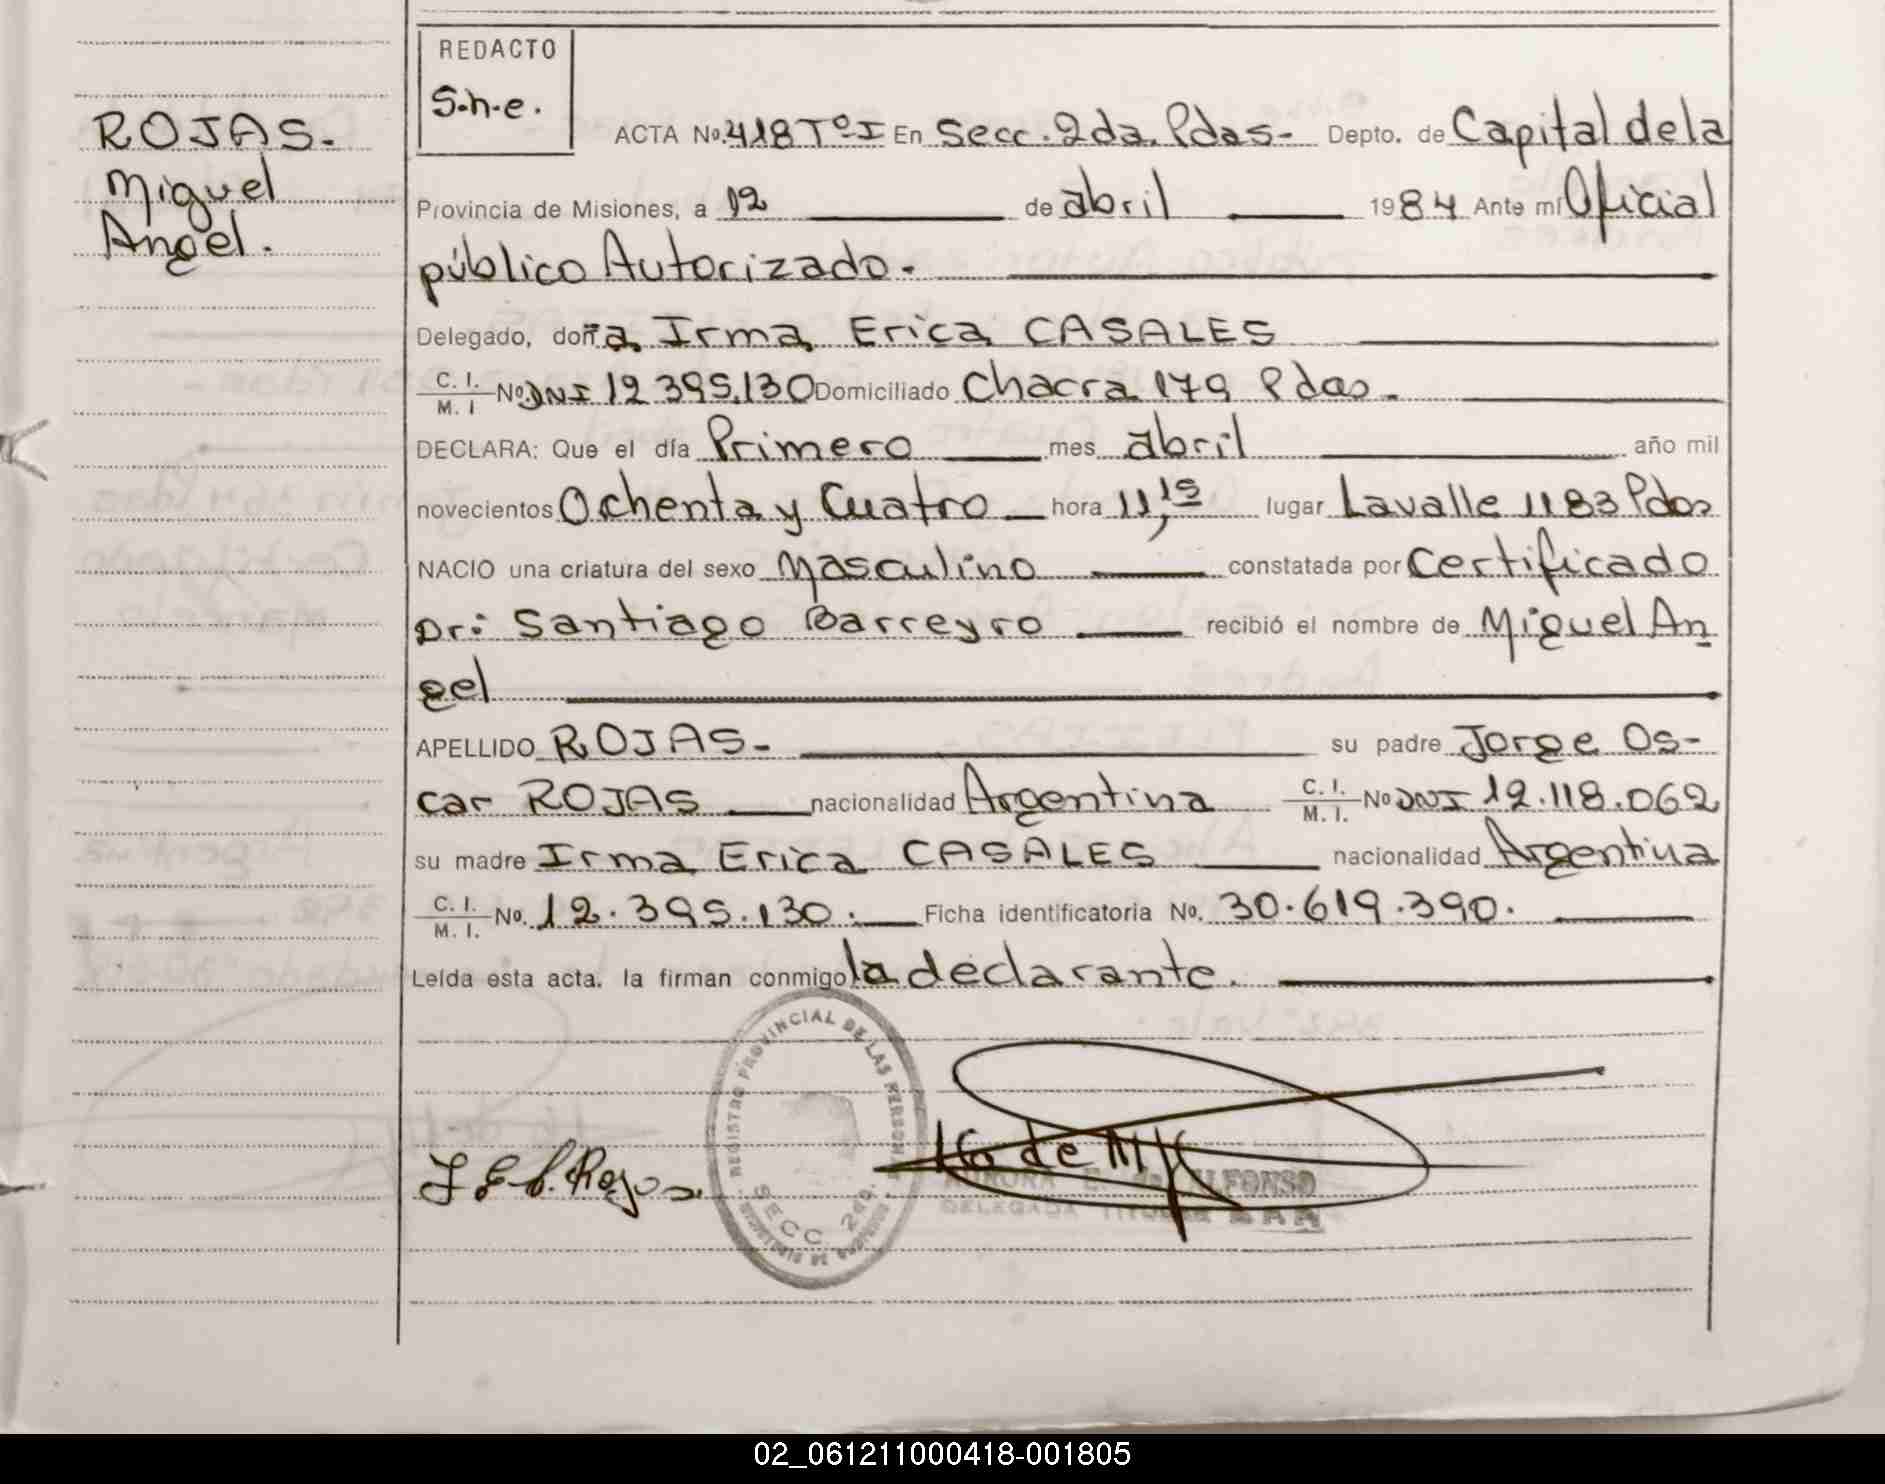 REDACTO
S.h.e.
ROJAS.
Miguel
Angel.
ACTA No. 418 Tº I En Secc. 2da. Pdas- Depto. de Capital de la
Provincia de Misiones, a 12 de abril 1984 Ante mí Oficial
público Autorizado.
Delegado, doña Irma Erica CASALES
C. I. / M. I No. DNI 12 395.130 Domiciliado Chacra 179 Pdas.
DECLARA: Que el día Primero mes abril año mil
novecientos Ochenta y Cuatro hora 11,15 lugar Lavalle 1183 Pdas
NACIO una criatura del sexo Masculino constatada por Certificado
Dr: Santiago Barreyro recibió el nombre de Miguel An
gel
APELLIDO ROJAS- su padre Jorge Os-
car ROJAS nacionalidad Argentina C. I. / M. I. No DNI 12.118.062
su madre Irma Erica CASALES nacionalidad Argentina
C. I. / M. I. No. 12.395.130. Ficha identificatoria No. 30.619.390.
Leída esta acta, la firman conmigo la declarante.
REGISTRO PROVINCIAL DE LAS PERSONAS
SECC. 2da.
DELEGADA TITULAR
02_061211000418-001805